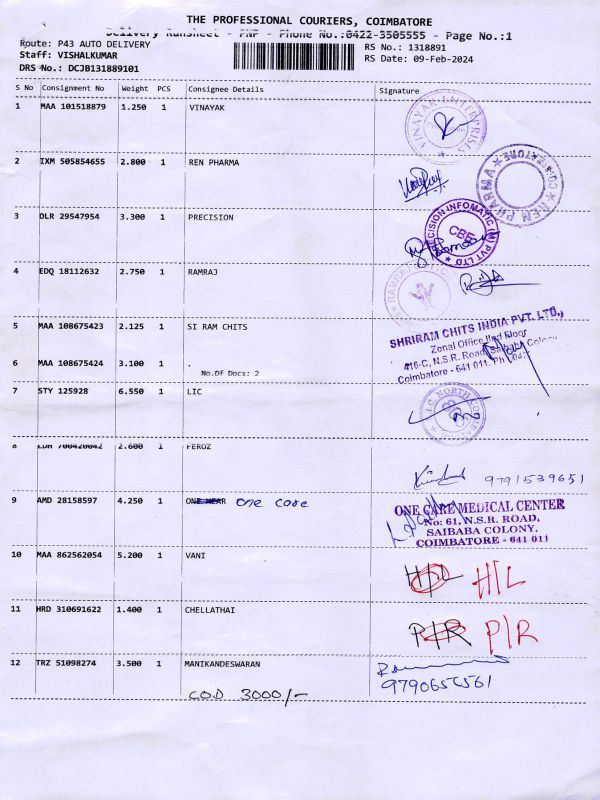 THE PROFESSIONAL COURIERS, COIMBATORE
Delivery Runsheet - PNP - Phone No.:0422-3505555 - Page No.:1
Route: P43 AUTO DELIVERY
RS No.: 1318891
Staff: VISHALKUMAR
RS Date: 09-Feb-2024
DRS No.: DCJB131889101
S No Consignment No Weight PCS Consignee Details Signature
1 MAA 101518879 1.250 1 VINAYAK
VINAYAK ENTERPRISES
2 IXM 505854655 2.800 1 REN PHARMA
REN PHARMA COIMBATORE
3 DLR 29547954 3.300 1 PRECISION
PRECISION INFOMATIC (M) PVT LTD
CBE
4 EDQ 18112632 2.750 1 RAMRAJ
5 MAA 108675423 2.125 1 SI RAM CHITS
SHRIRAM CHITS INDIA PVT. LTD.,
Zonal Office IInd Floor
416-C, N.S.R. Road, Saibaba Colony
Coimbatore - 641 011. Ph
6 MAA 108675424 3.100 1 .
No.Of Docs: 2
7 STY 125928 6.550 1 LIC
8 700420042 2.600 1 FEROZ
9791539651
9 AMD 28158597 4.250 1 one care
ONE CARE MEDICAL CENTER
No: 61, N.S.R. ROAD,
SAIBABA COLONY,
COIMBATORE - 641 011
10 MAA 862562054 5.200 1 VANI
H/L H/L
11 HRD 310691622 1.400 1 CHELLATHAI
P/R P/R
12 TRZ 51098274 3.500 1 MANIKANDESWARAN
COD 3000/-